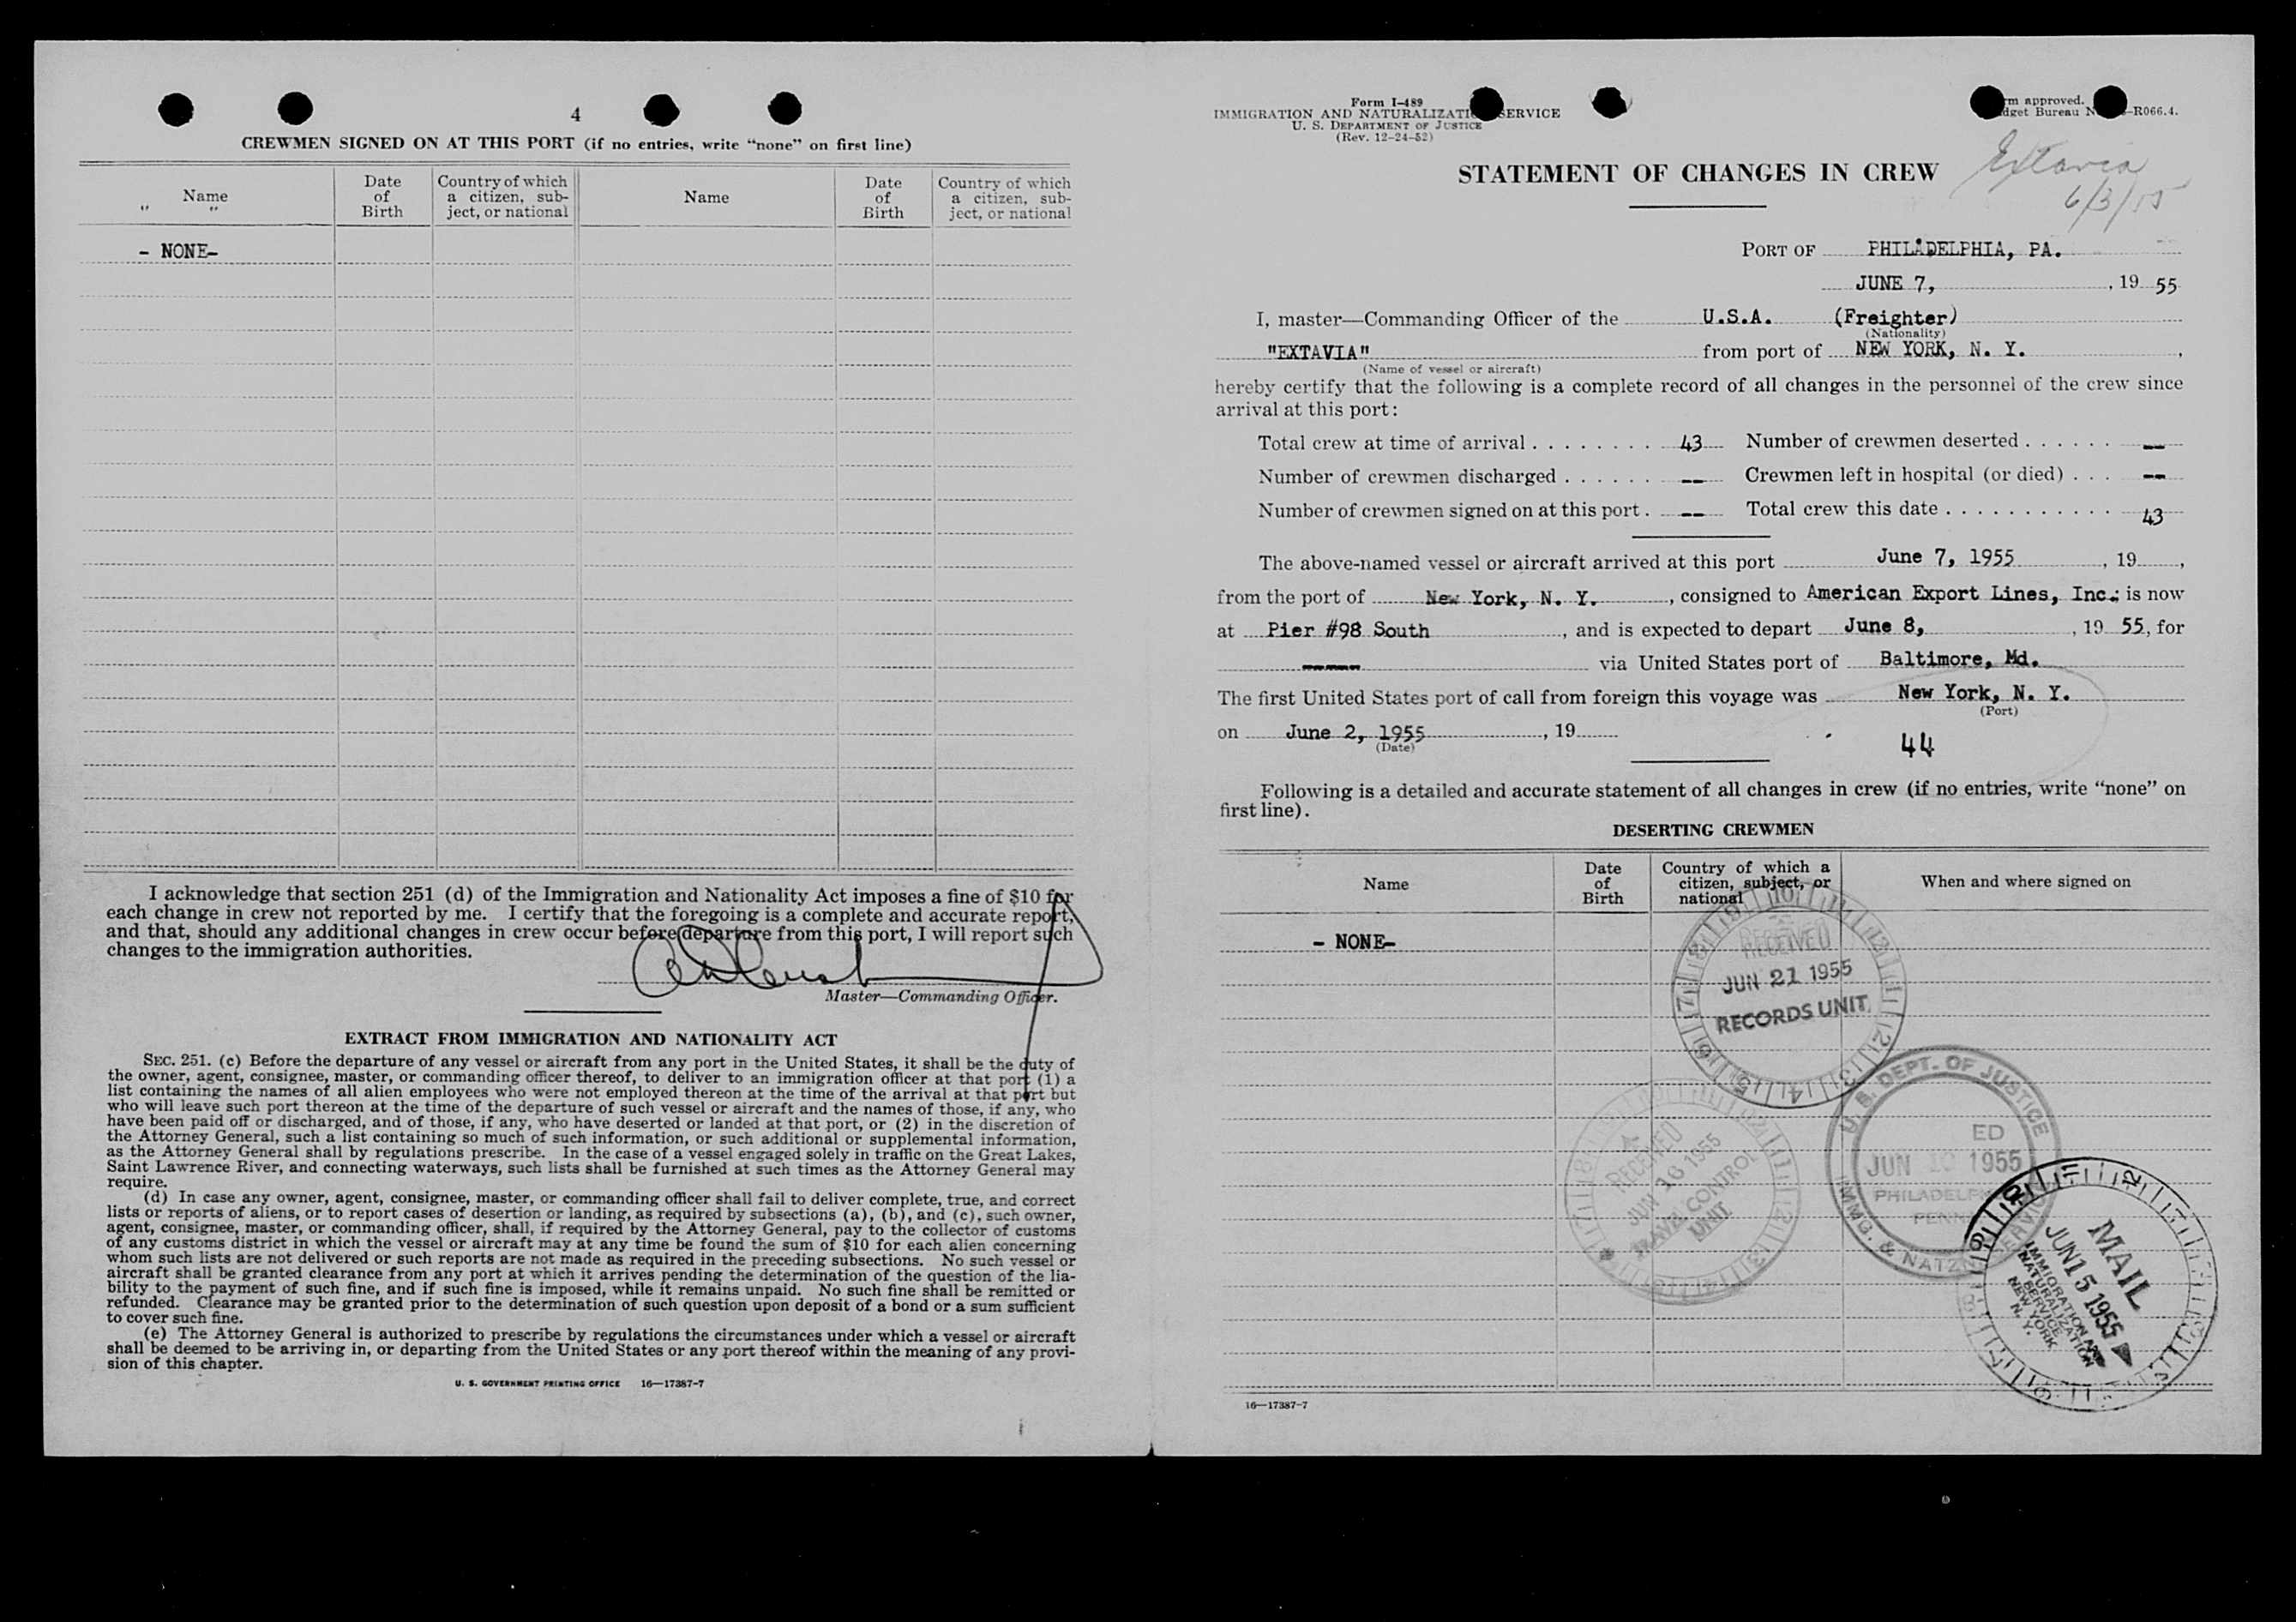 4
CREWMEN SIGNED ON AT THIS PORT (if no entries, write "none" on first line)
Name Date of Birth Country of which a citizen, subject, or national Name Date of Birth Country of which a citizen, subject, or national
" "
- NONE-
I acknowledge that section 251 (d) of the Immigration and Nationality Act imposes a fine of $10 for
each change in crew not reported by me. I certify that the foregoing is a complete and accurate report,
and that, should any additional changes in crew occur before departure from this port, I will report such
changes to the immigration authorities.
Master—Commanding Officer.
EXTRACT FROM IMMIGRATION AND NATIONALITY ACT
SEC. 251. (c) Before the departure of any vessel or aircraft from any port in the United States, it shall be the duty of
the owner, agent, consignee, master, or commanding officer thereof, to deliver to an immigration officer at that port (1) a
list containing the names of all alien employees who were not employed thereon at the time of the arrival at that port but
who will leave such port thereon at the time of the departure of such vessel or aircraft and the names of those, if any, who
have been paid off or discharged, and of those, if any, who have deserted or landed at that port, or (2) in the discretion of
the Attorney General, such a list containing so much of such information, or such additional or supplemental information,
as the Attorney General shall by regulations prescribe. In the case of a vessel engaged solely in traffic on the Great Lakes,
Saint Lawrence River, and connecting waterways, such lists shall be furnished at such times as the Attorney General may
require.
(d) In case any owner, agent, consignee, master, or commanding officer shall fail to deliver complete, true, and correct
lists or reports of aliens, or to report cases of desertion or landing, as required by subsections (a), (b), and (c), such owner,
agent, consignee, master, or commanding officer, shall, if required by the Attorney General, pay to the collector of customs
of any customs district in which the vessel or aircraft may at any time be found the sum of $10 for each alien concerning
whom such lists are not delivered or such reports are not made as required in the preceding subsections. No such vessel or
aircraft shall be granted clearance from any port at which it arrives pending the determination of the question of the lia-
bility to the payment of such fine, and if such fine is imposed, while it remains unpaid. No such fine shall be remitted or
refunded. Clearance may be granted prior to the determination of such question upon deposit of a bond or a sum sufficient
to cover such fine.
(e) The Attorney General is authorized to prescribe by regulations the circumstances under which a vessel or aircraft
shall be deemed to be arriving in, or departing from the United States or any port thereof within the meaning of any provi-
sion of this chapter.
U. S. GOVERNMENT PRINTING OFFICE 16—17387-7
Form I-489
IMMIGRATION AND NATURALIZATI SERVICE
U. S. DEPARTMENT OF JUSTICE
(Rev. 12-24-52)
rm approved.
dget Bureau N -R066.4.
Extavia
6/3/55
STATEMENT OF CHANGES IN CREW
PORT OF PHILADELPHIA, PA.
JUNE 7, , 19 55
I, master—Commanding Officer of the U.S.A. (Freighter)
(Nationality)
"EXTAVIA" from port of NEW YORK, N. Y. ,
(Name of vessel or aircraft)
hereby certify that the following is a complete record of all changes in the personnel of the crew since
arrival at this port:
Total crew at time of arrival . . . . . . . . 43 Number of crewmen deserted . . . . . . --
Number of crewmen discharged . . . . . . -- Crewmen left in hospital (or died) . . . --
Number of crewmen signed on at this port . -- Total crew this date . . . . . . . . . . . 43
The above-named vessel or aircraft arrived at this port June 7, 1955 , 19 ,
from the port of New York, N. Y. , consigned to American Export Lines, Inc.; is now
at Pier #98 South , and is expected to depart June 8, , 19 55, for
----- via United States port of Baltimore, Md.
The first United States port of call from foreign this voyage was New York, N. Y.
(Port)
on June 2, 1955 , 19
(Date)
44
Following is a detailed and accurate statement of all changes in crew (if no entries, write "none" on
first line).
DESERTING CREWMEN
Name Date of Birth Country of which a citizen, subject, or national When and where signed on
- NONE-
RECEIVED
JUN 21 1955
RECORDS UNIT
RECEIVED
JUN 16 1955
TRAVEL CONTROL
UNIT
U. S. DEPT. OF JUSTICE
ED
JUN 10 1955
PHILADELPHIA
PENN
IMMG. & NATZN SERVICE
MAIL
JUN 15 1955
IMMIGRATION AND
NATURALIZATION
SERVICE
NEW YORK
N. Y.
16—17387-7